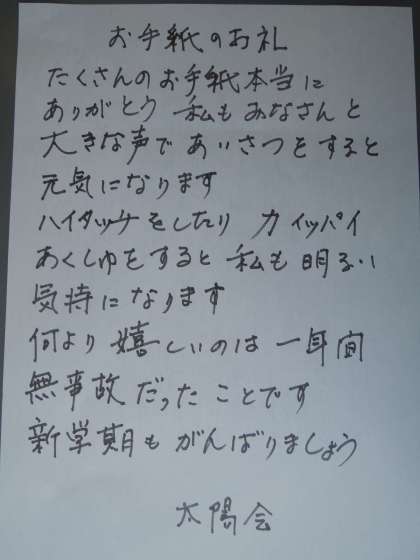 お手紙のお礼
たくさんのお手紙本当に
ありがとう 私もみなさんと
大きな声であいさつをすると
元気になります
ハイタッチをしたり カイッパイ
あくしゅをすると私も明るい
気持になります
何より嬉しいのは一年間
無事故だったことです
新学期もがんばりましょう
太陽会